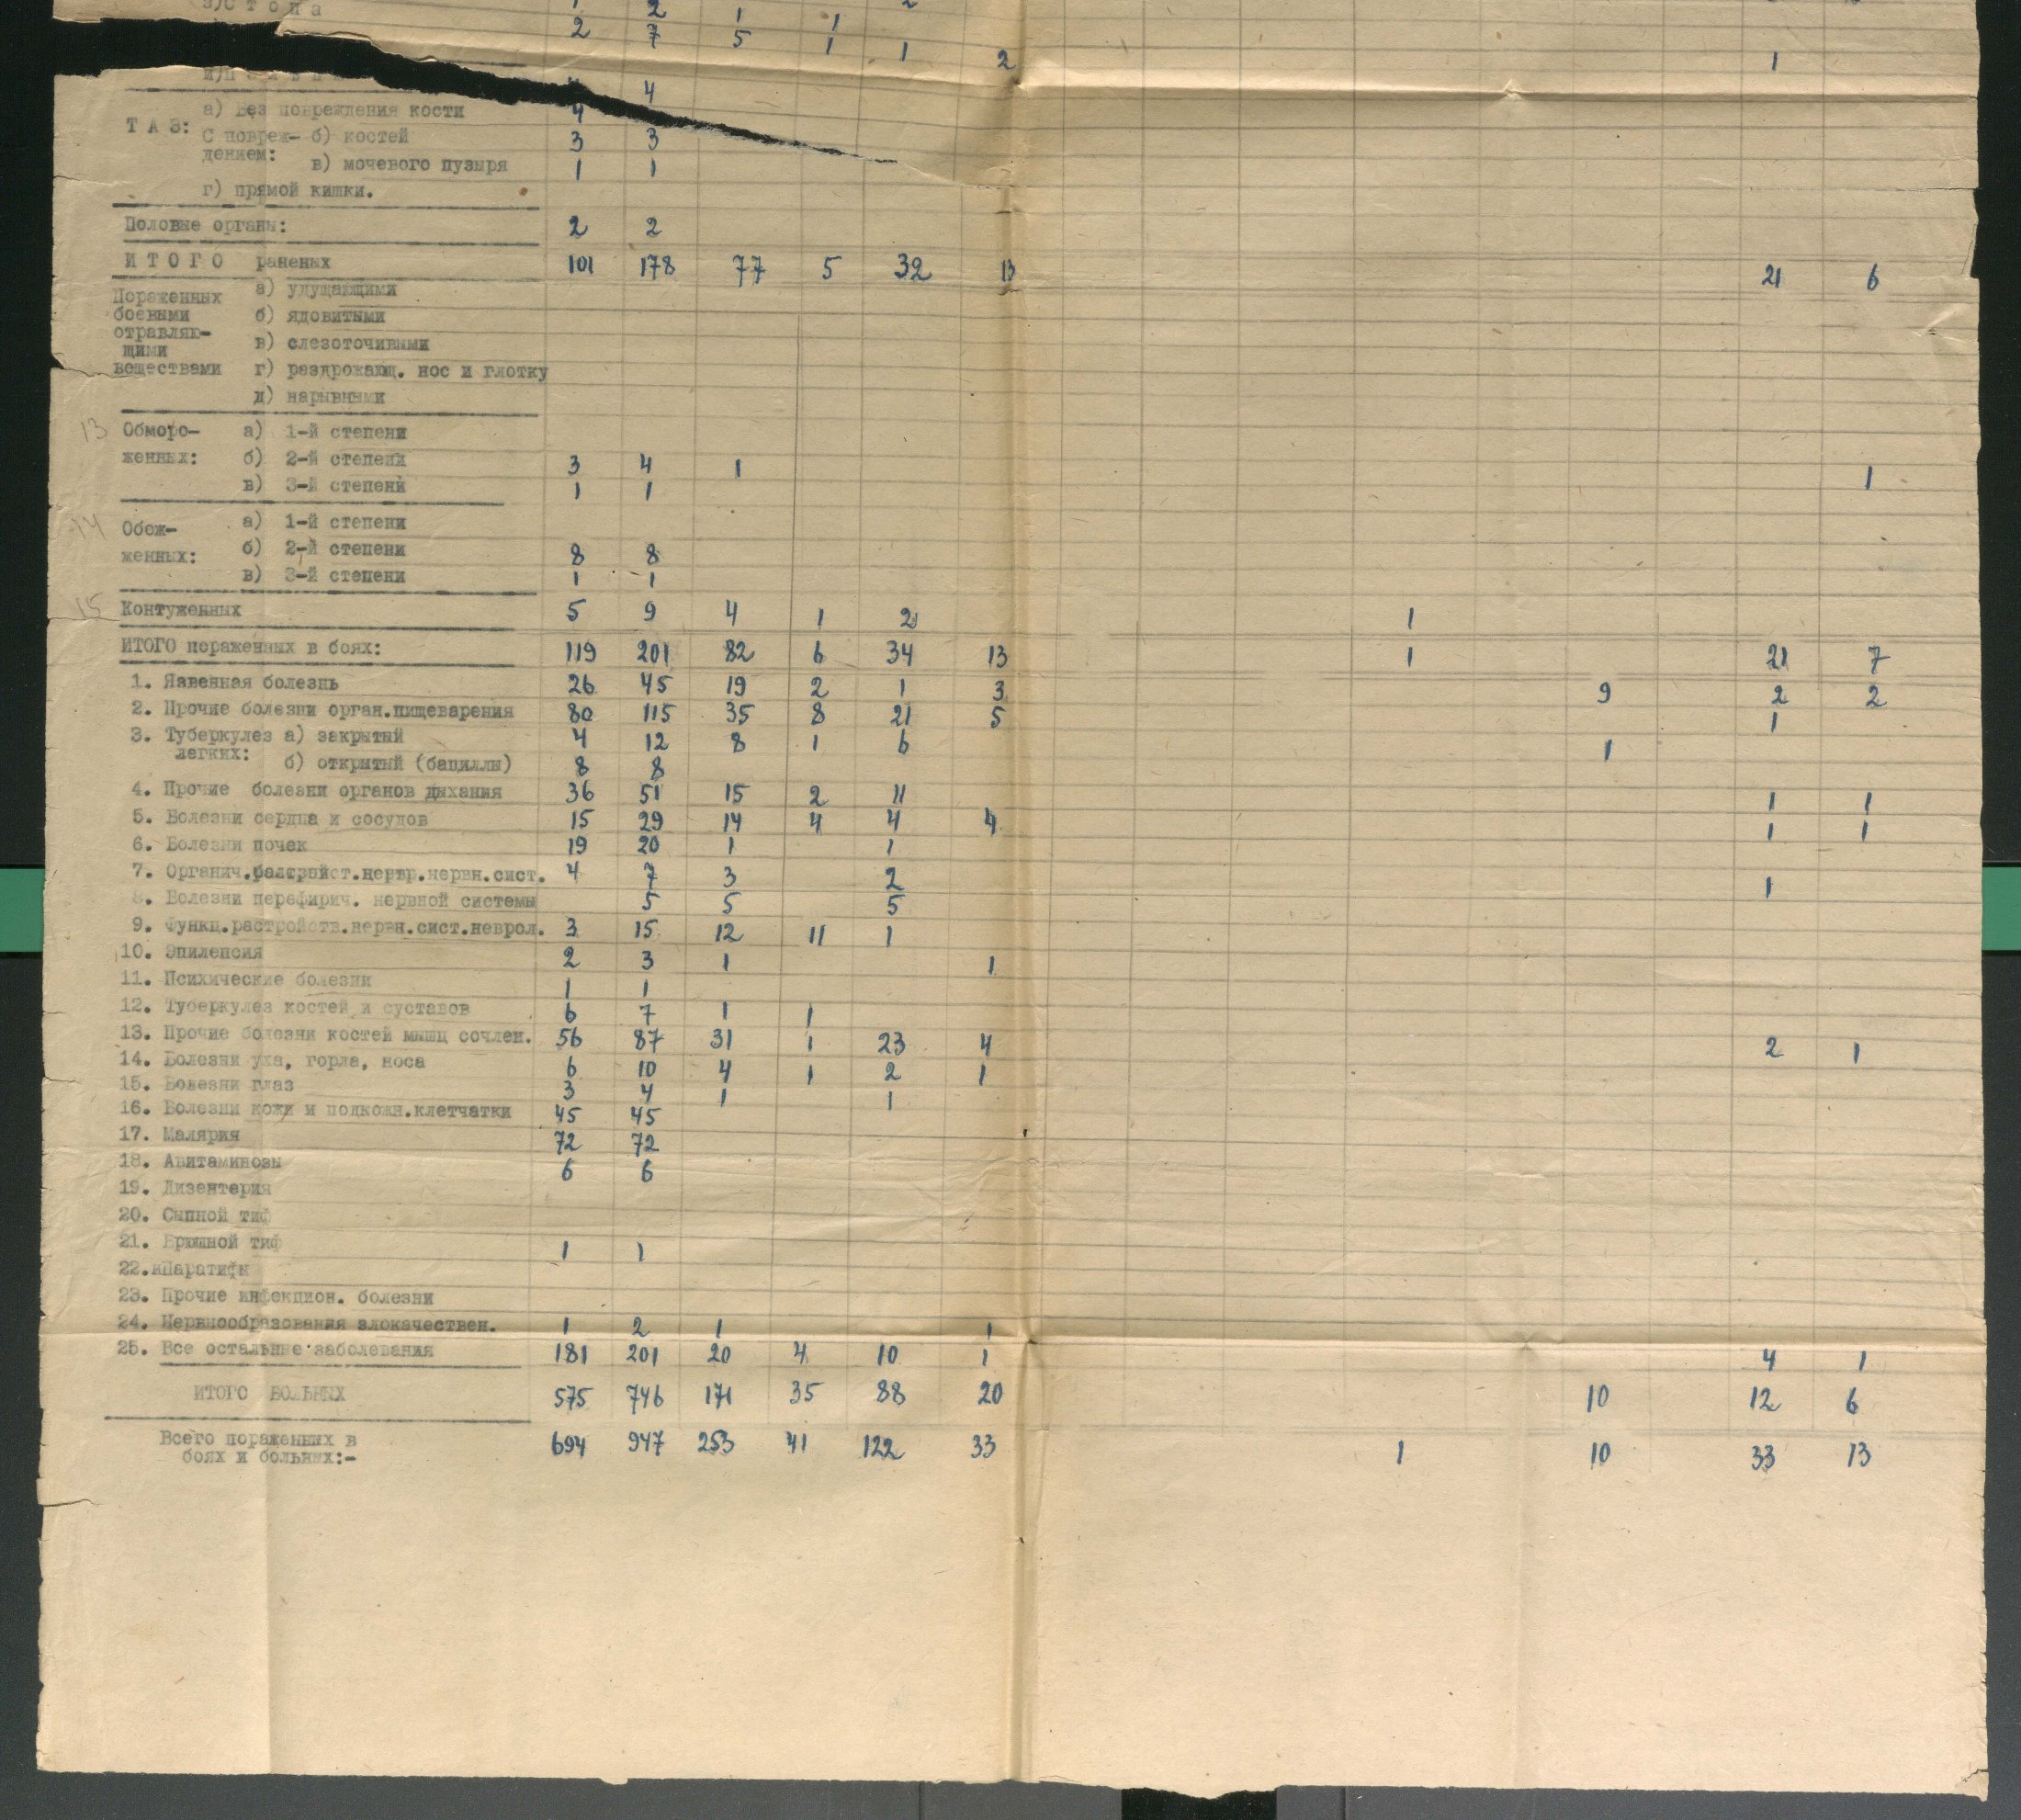 з) С т о п а 1 2 1 1 2
2 7 5 1 1 2 1
4 4
а) Без повреждения кости 4
Т А З: С повреж- б) костей 3 3
дением: в) мочевого пузыря 1 1
г) прямой кишки.
Половые органы: 2 2
И Т О Г О раненых 101 178 77 5 32 13 21 6
Пораженных а) удущающими
боевыми б) ядовитыми
отравляю- в) слезоточивыми
щими
веществами г) раздрожающ. нос и глотку
д) нарывными
13 Обморо- а) 1-й степени
женных: б) 2-й степени 3 4 1
в) 3-й степени 1 1 1
14 Обож- а) 1-й степени
женных: б) 2-й степени 8 8
в) 3-й степени 1 1
15 Контуженных 5 9 4 1 2 1
ИТОГО пораженных в боях: 119 201 82 6 34 13 1 21 7
1. Язвенная болезнь 26 45 19 2 1 3 9 2 2
2. Прочие болезни орган.пищеварения 80 115 35 8 21 5 1
3. Туберкулез а) закрытый 4 12 8 1 6 1
легких: б) открытый (бациллы) 8 8
4. Прочие болезни органов дыхания 36 51 15 2 11 1 1
5. Болезни сердца и сосудов 15 29 14 4 4 4 1 1
6. Болезни почек 19 20 1 1
7. Органич. нервн.сист. 4 7 3 2 1
8. Болезни перефирич. нервной системы 5 5 5
9. Функц.растройств.нервн.сист.неврол. 3 15 12 11 1
10. Эпилепсия 2 3 1 1
11. Психические болезни 1 1
12. Туберкулез костей и суставов 6 7 1 1
13. Прочие болезни костей мышц сочлен. 56 87 31 1 23 4 2 1
14. Болезни уха, горла, носа 6 10 4 1 2 1
15. Болезни глаз 3 4 1 1
16. Болезни кожи и подкожн.клетчатки 45 45
17. Малярия 72 72
18. Авитаминозы 6 6
19. Дизентерия
20. Сыпной тиф
21. Брюшной тиф 1 1
22. Паратифы
23. Прочие инфекцион. болезни
24. Новообразования злокачествен. 1 2 1 1
25. Все остальные заболевания 181 201 20 4 10 1 4 1
ИТОГО БОЛЬНЫХ 575 746 171 35 88 20 10 12 6
Всего пораженных в 694 947 253 41 122 33 1 10 33 13
боях и больных:-